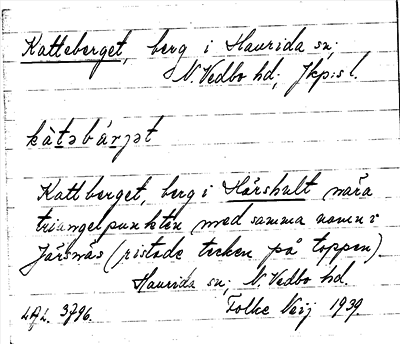 Katteberget, berg i Haurida sn;
N. Vedbo hd; Jkp:s l.
kàtəbárjət
Kattberget, berg i Hårshult nära
triangelpunkten med samma namn i
Järsnäs (ristade tecken på toppen).
Haurida sn; N. Vedbo hd.
LAL. 3796. Folke Neij 1939.